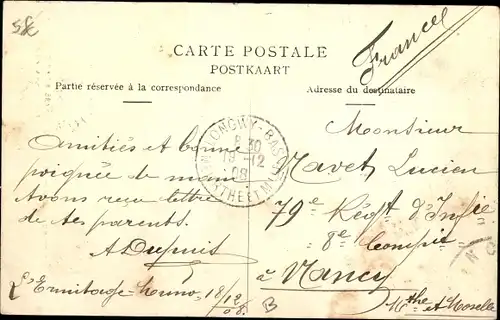 58
France
CARTE POSTALE
POSTKAART
Partie réservée à la correspondance
Adresse du destinataire
LONGWY-BAS
8 30
19-12
08
MTHE ET M
Monsieur
Navet Lucien
79e Régt d'Infie
8e Compie
à Nancy
Mthe et Moselle
Amitiés et bonne
poignée de main
Avons reçu lettre
de tes parents.
A Dupuis
L'Ermitage 18/12
08.
B